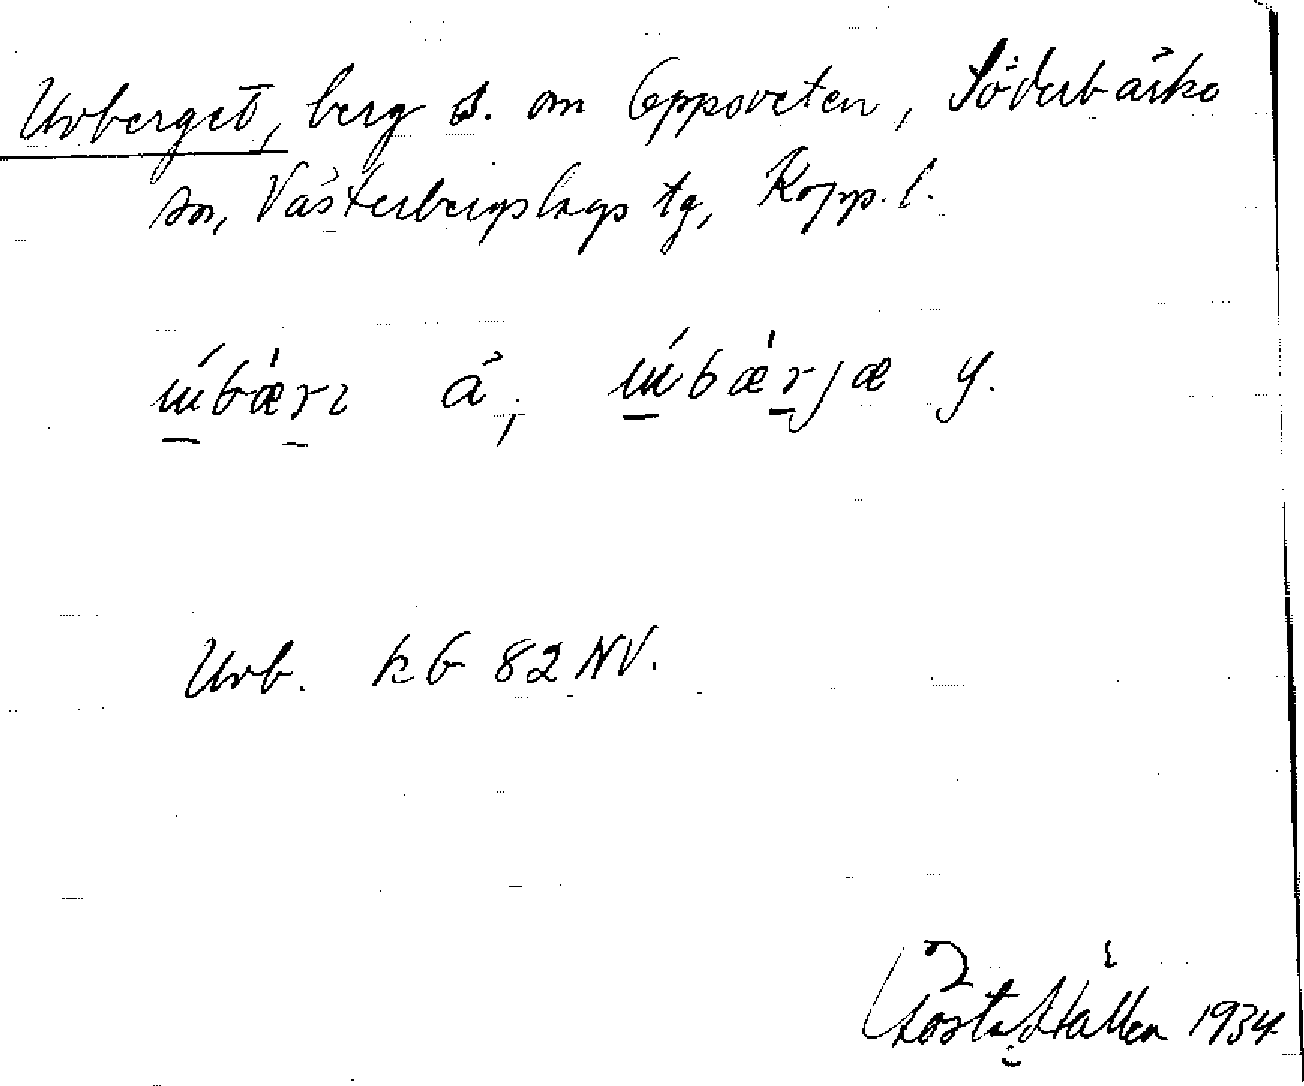 Urberget, berg s. om Oppsveten, Söderbärke
sn, Västerbergslags tg, Kopp. l.
ɯ́bærɩ ä; ɯ́bærjæ y.
Urb. kb 82 NV.
Gösta Hallen 1934